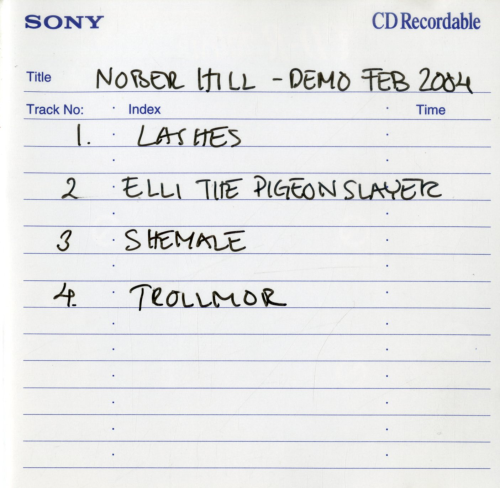 SONY CD Recordable
Title NOBER HILL - DEMO FEB 2004
Track No: Index Time
1. LASHES
2 ELLI THE PIGEONSLAYER
3 SHEMALE
4. TROLLMOR